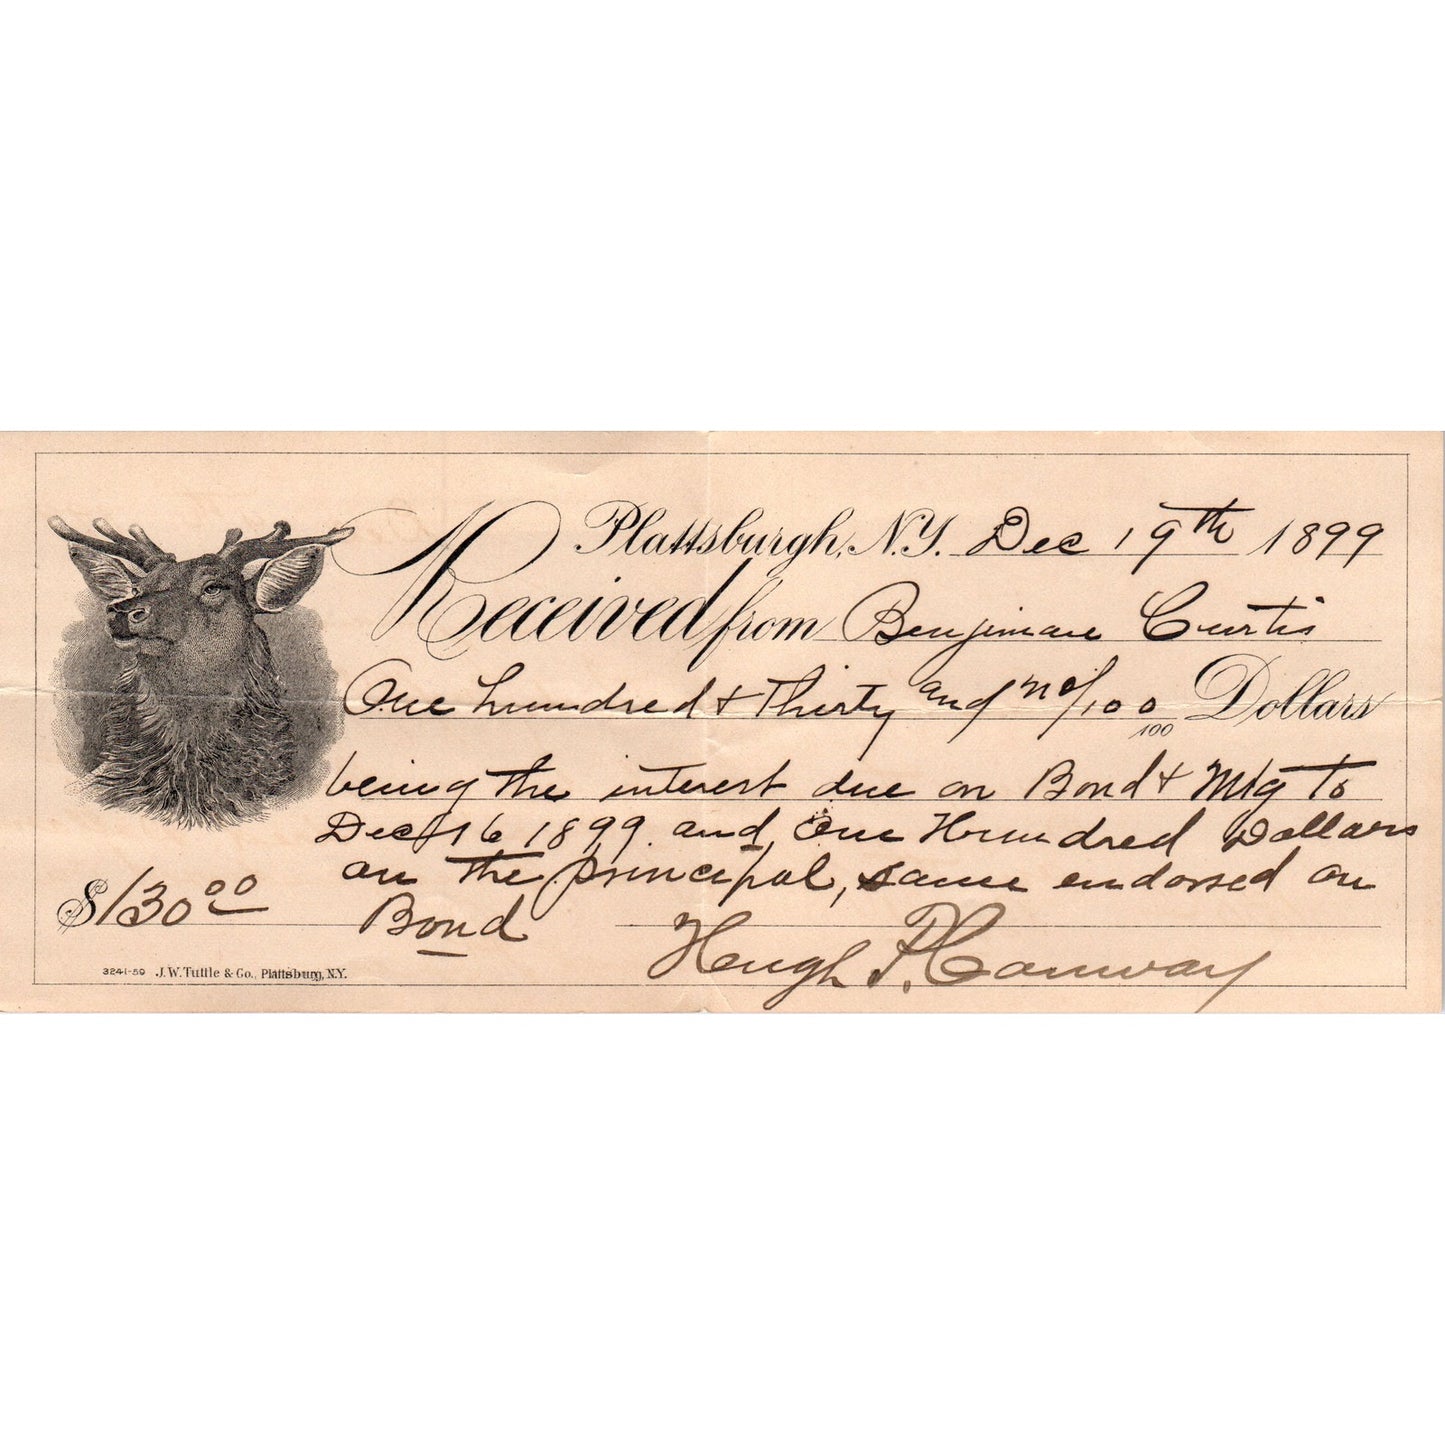 Plattsburgh, N.Y. Dec 19th 1899
Received from Benjimane Curtis
One hundred & Thirty and no/100 Dollars
100
being the interest due on Bond & Mtg to
Dec 16 1899 and One Hundred Dollars
on the principal, same endorsed on
$130 00 Bond
Hugh F. Conway
3241-50 J.W. Tuttle & Co., Plattsburg, N.Y.